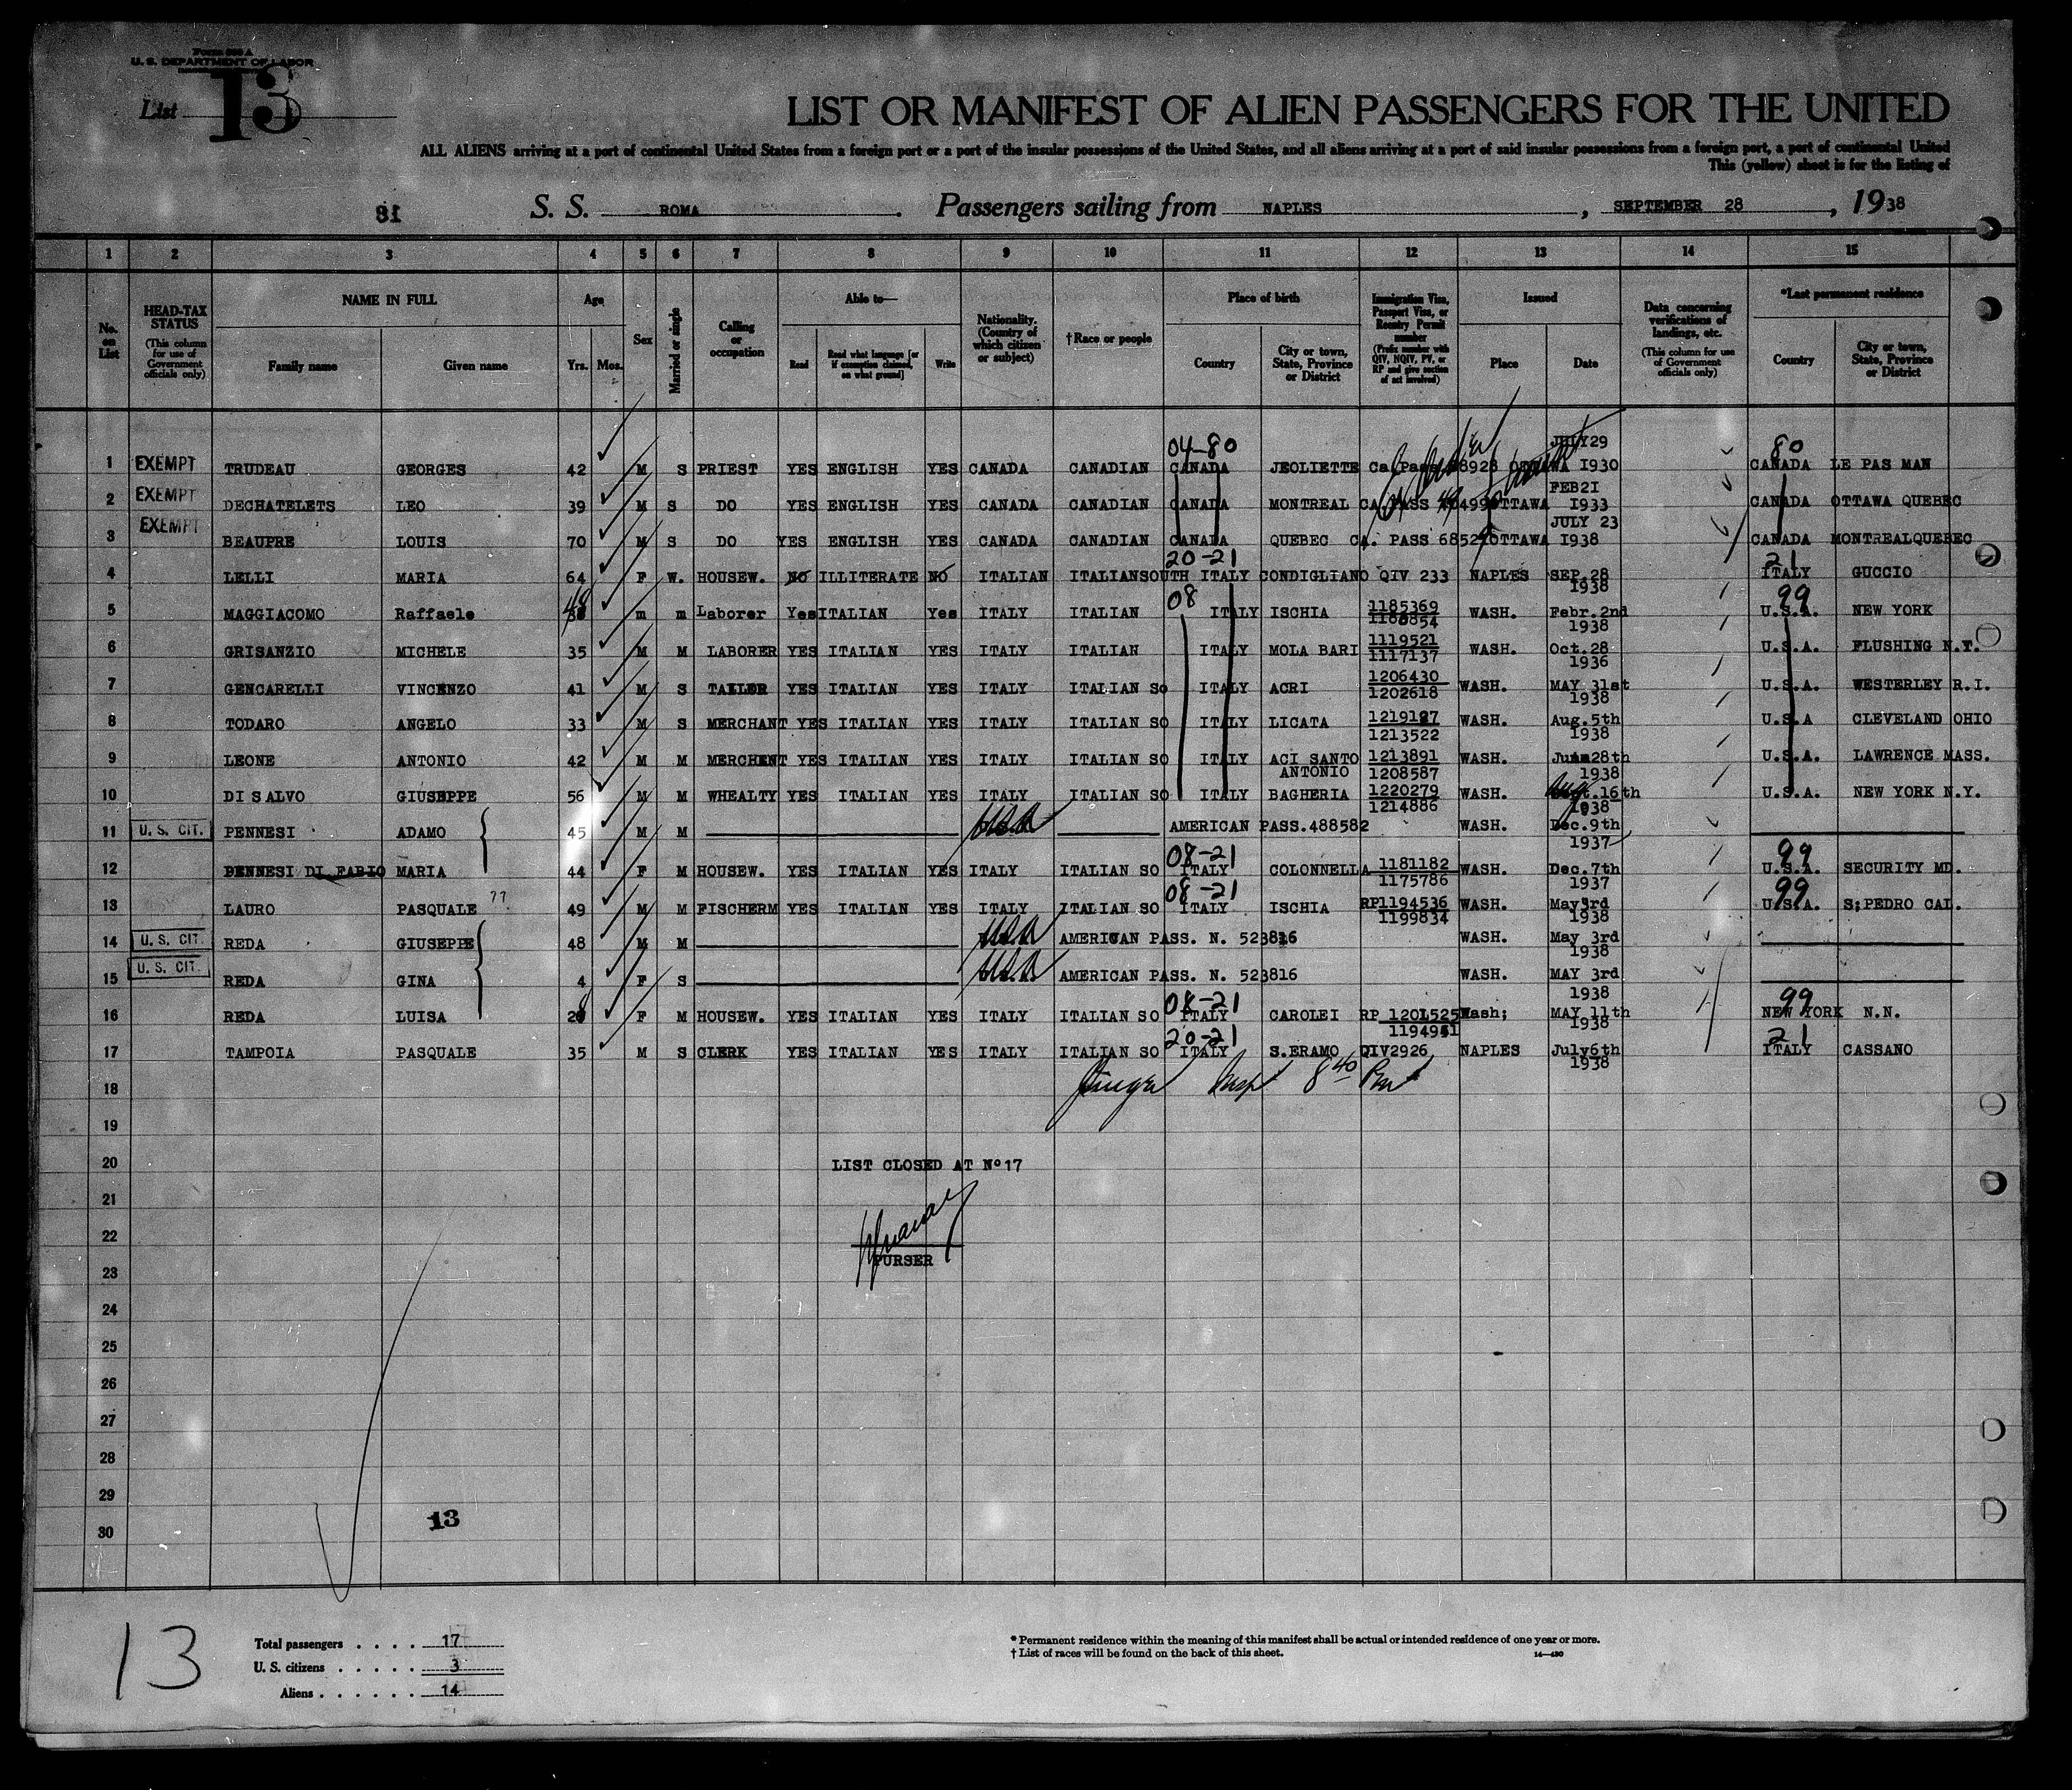 Form 500 A
U. S. DEPARTMENT OF LABOR
List 13
LIST OR MANIFEST OF ALIEN PASSENGERS FOR THE UNITED
ALL ALIENS arriving at a port of continental United States from a foreign port or a port of the insular possessions of the United States, and all aliens arriving at a port of said insular possessions from a foreign port, a port of continental United
This (yellow) sheet is for the listing of
S. S. ROMA. Passengers sailing from NAPLES, SEPTEMBER 28, 1938
1 2 3 4 5 6 7 8 9 10 11 12 13 14 15
No. on List
HEAD-TAX STATUS (This column for use of Government officials only)
NAME IN FULL Family name Given name
Age Yrs. Mos.
Sex
Married or single
Calling or occupation
Able to— Read Read what language [or if exemption claimed, on what ground] Write
Nationality. (Country of which citizen or subject)
†Race or people
Place of birth Country City or town, State, Province or District
Immigration Visa, Passport Visa, or Reentry Permit number (Prefix number with QIV, NQIV, PV, or RP and give section of act involved)
Issued Place Date
Data concerning verifications of landings, etc. (This column for use of Government officials only)
*Last permanent residence Country City or town, State, Province or District
04-80 JULY29 80
1 EXEMPT TRUDEAU GEORGES 42 M S PRIEST YES ENGLISH YES CANADA CANADIAN CANADA JEOLIETTE I930 CANADA LE PAS MAN
FEB2I
2 EXEMPT DECHATELETS LEO 39 M S DO YES ENGLISH YES CANADA CANADIAN CANADA MONTREAL CA. PASS OTTAWA I933 CANADA OTTAWA QUEBEC
JULY 23
3 EXEMPT BEAUPRE LOUIS 70 M S DO YES ENGLISH YES CANADA CANADIAN CANADA QUEBEC CA. PASS 6852 OTTAWA I938 CANADA MONTREALQUEBEC
20-21 21
4 LELLI MARIA 64 F W. HOUSEW. NO ILLITERATE NO ITALIAN ITALIANSOUTH ITALY CONDIGLIANO QIV 233 NAPLES SEP.28 1938 ITALY GUCCIO
08 99
5 MAGGIACOMO Raffaele 48 m m Laborer Yes ITALIAN Yes ITALY ITALIAN ITALY ISCHIA 1185369 WASH. Febr.2nd 1938 U.S.A. NEW YORK
6 GRISANZIO MICHELE 35 M M LABORER YES ITALIAN YES ITALY ITALIAN ITALY MOLA BARI 1119521 1117137 WASH. Oct.28 1936 U.S.A. FLUSHING N.Y.
7 GENCARELLI VINCENZO 41 M S TAILOR YES ITALIAN YES ITALY ITALIAN SO ITALY ACRI 1206430 1202618 WASH. MAY 31st 1938 U.S.A. WESTERLEY R.I.
8 TODARO ANGELO 33 M S MERCHANT YES ITALIAN YES ITALY ITALIAN SO ITALY LICATA 1219127 1213522 WASH. Aug.5th 1938 U.S.A CLEVELAND OHIO
9 LEONE ANTONIO 42 M M MERCHENT YES ITALIAN YES ITALY ITALIAN SO ITALY ACI SANTO ANTONIO 1213891 1208587 WASH. 28th 1938 U.S.A. LAWRENCE MASS.
10 DI SALVO GIUSEPPE 56 M M WHEALTY YES ITALIAN YES ITALY ITALIAN SO ITALY BAGHERIA 1220279 1214886 WASH. Aug. 16th 1938 U.S.A. NEW YORK N.Y.
11 U. S. CIT. PENNESI ADAMO 45 M M USA AMERICAN PASS.488582 WASH. Dec.9th 1937
08-21 99
12 PENNESI DI FABIO MARIA 44 F M HOUSEW. YES ITALIAN YES ITALY ITALIAN SO ITALY COLONNELLA 1181182 1175786 WASH. Dec.7th 1937 U.S.A. SECURITY MD.
08-21 99
13 LAURO PASQUALE ?? 49 M M FISCHERM YES ITALIAN YES ITALY ITALIAN SO ITALY ISCHIA RP1194536 1199834 WASH. May3rd 1938 U.S.A. S;PEDRO CAL.
14 U. S. CIT. REDA GIUSEPPE 48 M M USA AMERICAN PASS. N. 523816 WASH. May 3rd 1938
15 U. S. CIT. REDA GINA 4 F S USA AMERICAN PASS. N. 523816 WASH. MAY 3rd 1938
08-21 99
16 REDA LUISA 28 F M HOUSEW. YES ITALIAN YES ITALY ITALIAN SO ITALY CAROLEI RP 1201525 1194951 Wash; MAY 11th 1938 NEW YORK N.N.
20-21 21
17 TAMPOIA PASQUALE 35 M S CLERK YES ITALIAN YES ITALY ITALIAN SO ITALY S.ERAMO QIV2926 NAPLES July6th 1938 ITALY CASSANO
18 Insp 8 40 Pm
19
20 LIST CLOSED AT Nº17
21
22
PURSER
23
24
25
26
27
28
29
13
30
13
Total passengers . . . . 17
U. S. citizens . . . . . 3
Aliens . . . . . . 14
* Permanent residence within the meaning of this manifest shall be actual or intended residence of one year or more.
† List of races will be found on the back of this sheet.
14—430